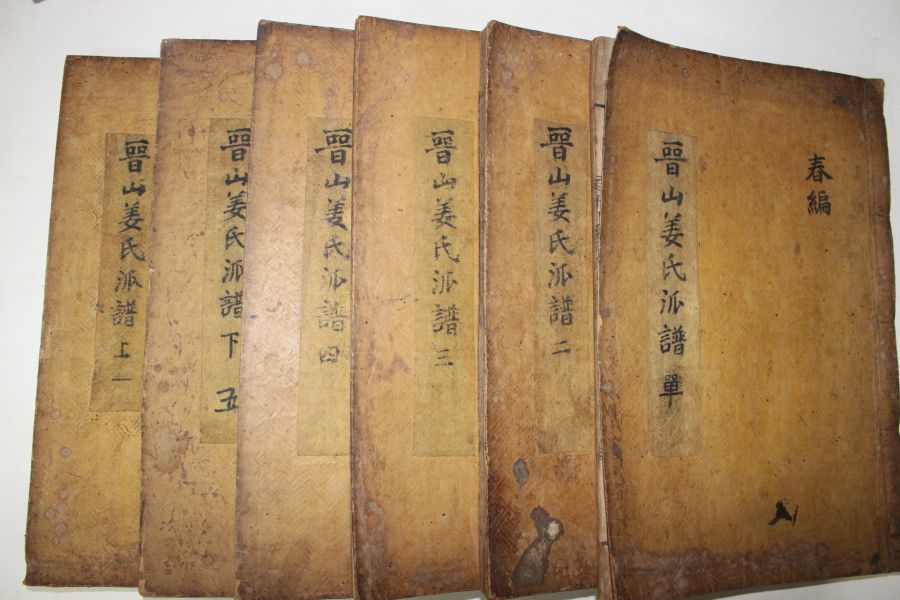 晉山姜氏派譜 上 一
晉山姜氏派譜 下 五
晉山姜氏派譜 四
晉山姜氏派譜 三
晉山姜氏派譜 二
晉山姜氏派譜 單
春編